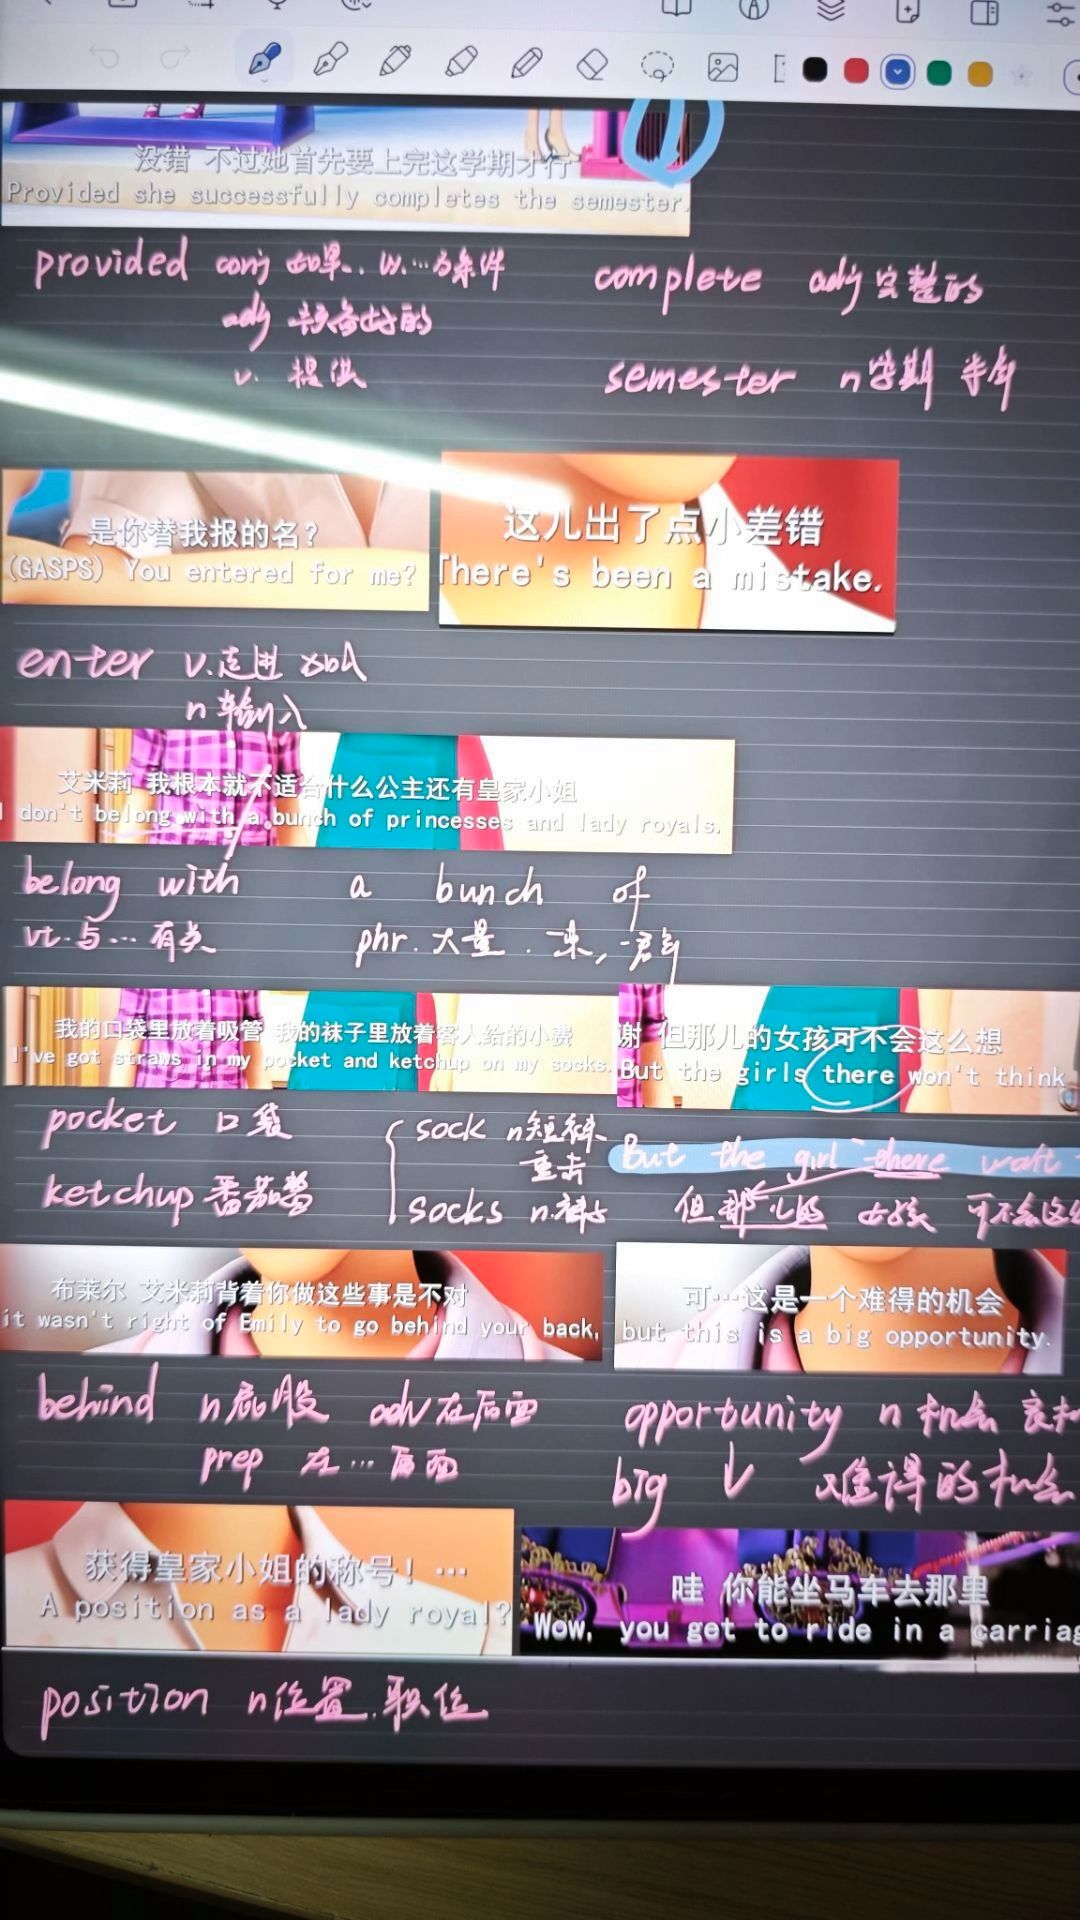 没错 不过她首先要上完这学期才行
Provided she successfully completes the semester.
provided conj 如果.. 以…为条件
adj 预备好的
v. 提供
complete adj 完整的
semester n 学期 半年
是你替我报的名？
(GASPS) You entered for me?
这儿出了点小差错
There's been a mistake.
enter v.走进
n 输入
艾米莉 我根本就不适合什么公主还有皇家小姐
I don't belong with a bunch of princesses and lady royals.
belong with
vt.与…有关
a bunch of
phr. 大量.一束,一群
我的口袋里放着吸管 我的袜子里放着客人给的小费
I've got straws in my pocket and ketchup on my socks.
谢 但那儿的女孩可不会这么想
But the girls there won't think
pocket 口袋
ketchup 番茄酱
sock n短袜
重击
socks n.袜子
But the girl there
但那儿的 女孩 可不会这么
布莱尔 艾米莉背着你做这些事是不对
it wasn't right of Emily to go behind your back,
可…这是一个难得的机会
but this is a big opportunity.
behind n屁股 adv在后面
prep 在…后面
opportunity n 机会
big ↓ 难得的机会
获得皇家小姐的称号！…
A position as a lady royal?
哇 你能坐马车去那里
Wow, you get to ride in a carriag
position n位置.职位